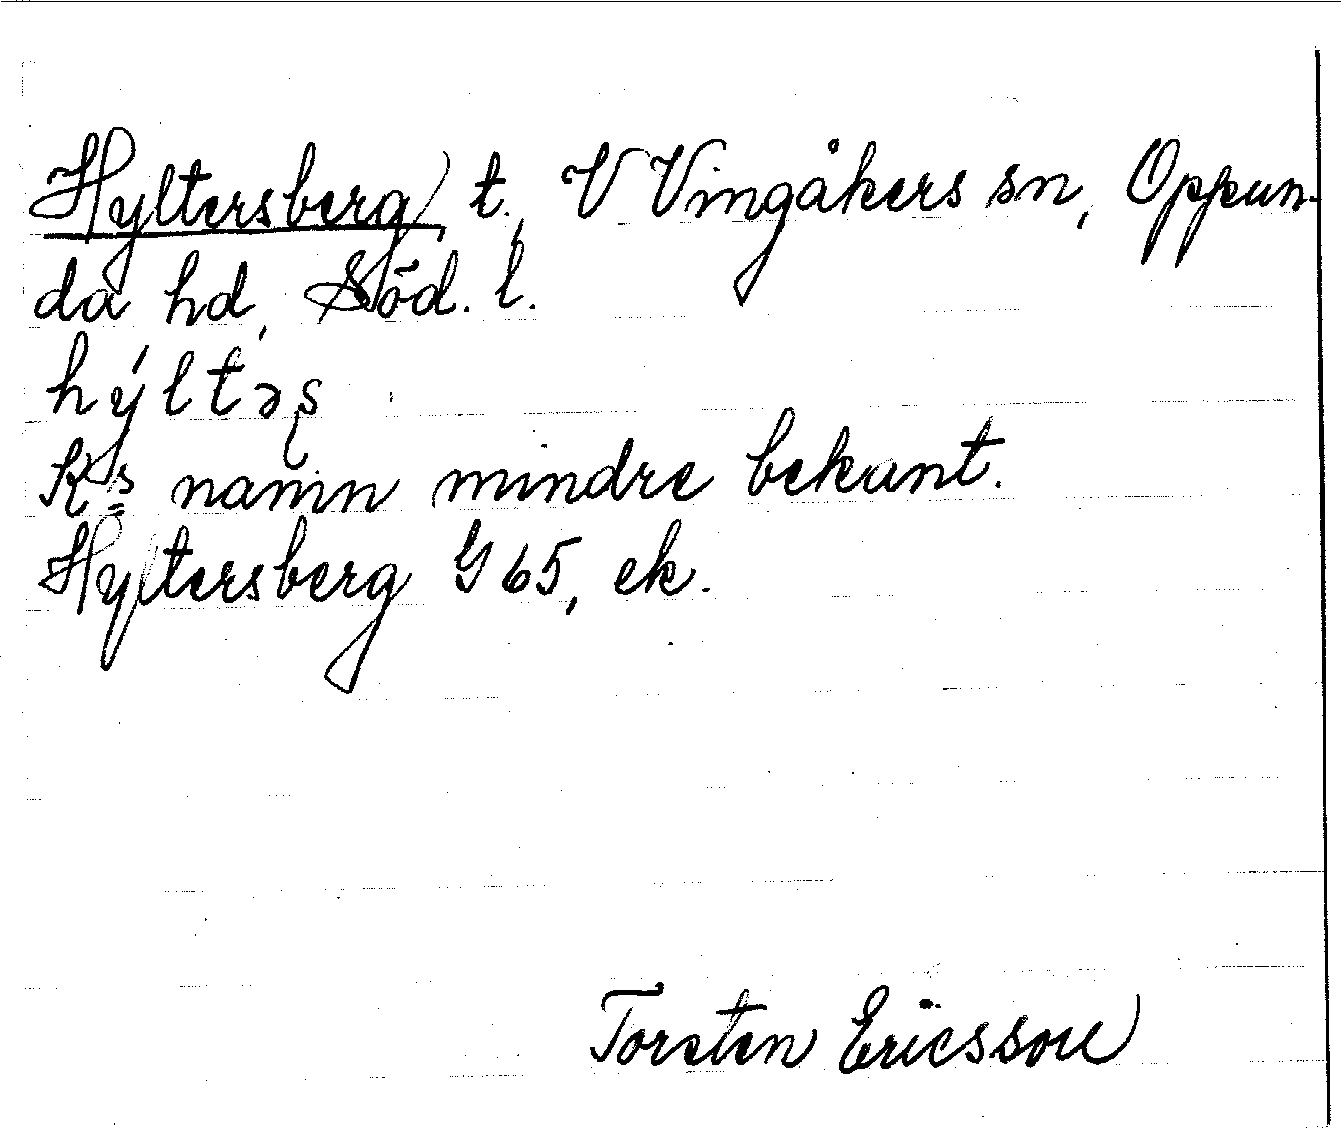 Hyltersberg, t., V Vingåkers sn, Oppun-
da hd, Söd. l.
hýltəş
K:s namn mindre bekant.
Hyltersberg G 65, ek.
Torsten Ericsson